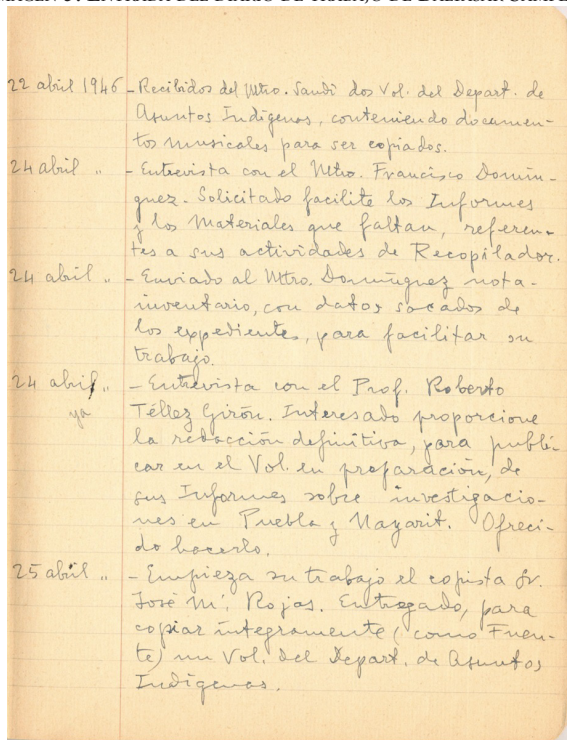 22 abril 1946 - Recibidos del Mtro. Sandi dos Vol. del Depart. de
Asuntos Indígenas, conteniendo documen-
tos musicales para ser copiados.
24 abril " - Entrevista con el Mtro. Francisco Domín-
guez. Solicitado facilite los Informes
y los Materiales que faltan, referen-
tes a sus actividades de Recopilador.
24 abril " - Enviado al Mtro. Domínguez nota-
inventario, con datos sacados de
los expedientes, para facilitar su
trabajo.
24 abril " - Entrevista con el Prof. Roberto
ya Téllez Girón. Interesado proporcione
la redacción definitiva, para publi-
car en el Vol. en preparación, de
sus Informes sobre investigacio-
nes en Puebla y Nayarit. Ofreci-
do hacerlo.
25 abril " - Empieza su trabajo el copista Sr.
José Mª. Rojas. Entregado, para
copiar íntegramente (como Fuen-
te) un Vol. del Depart. de Asuntos
Indígenas.